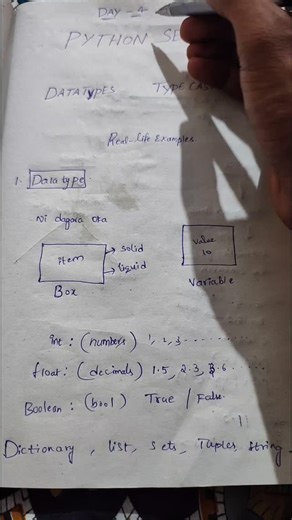 DAY - 4
PYTHON SE
DATATYPES TYPE CAS
Real-life Examples
1. Datatype
Ni dagara oka
item → solid
→ liquid
Box
value
10
Variable
int : (numbers) 1, 2, 3 ......
float : (decimals) 1.5, 2.3, 3.6 ......
Boolean : (bool) True / False
Dictionary , list, sets, Tuples, String